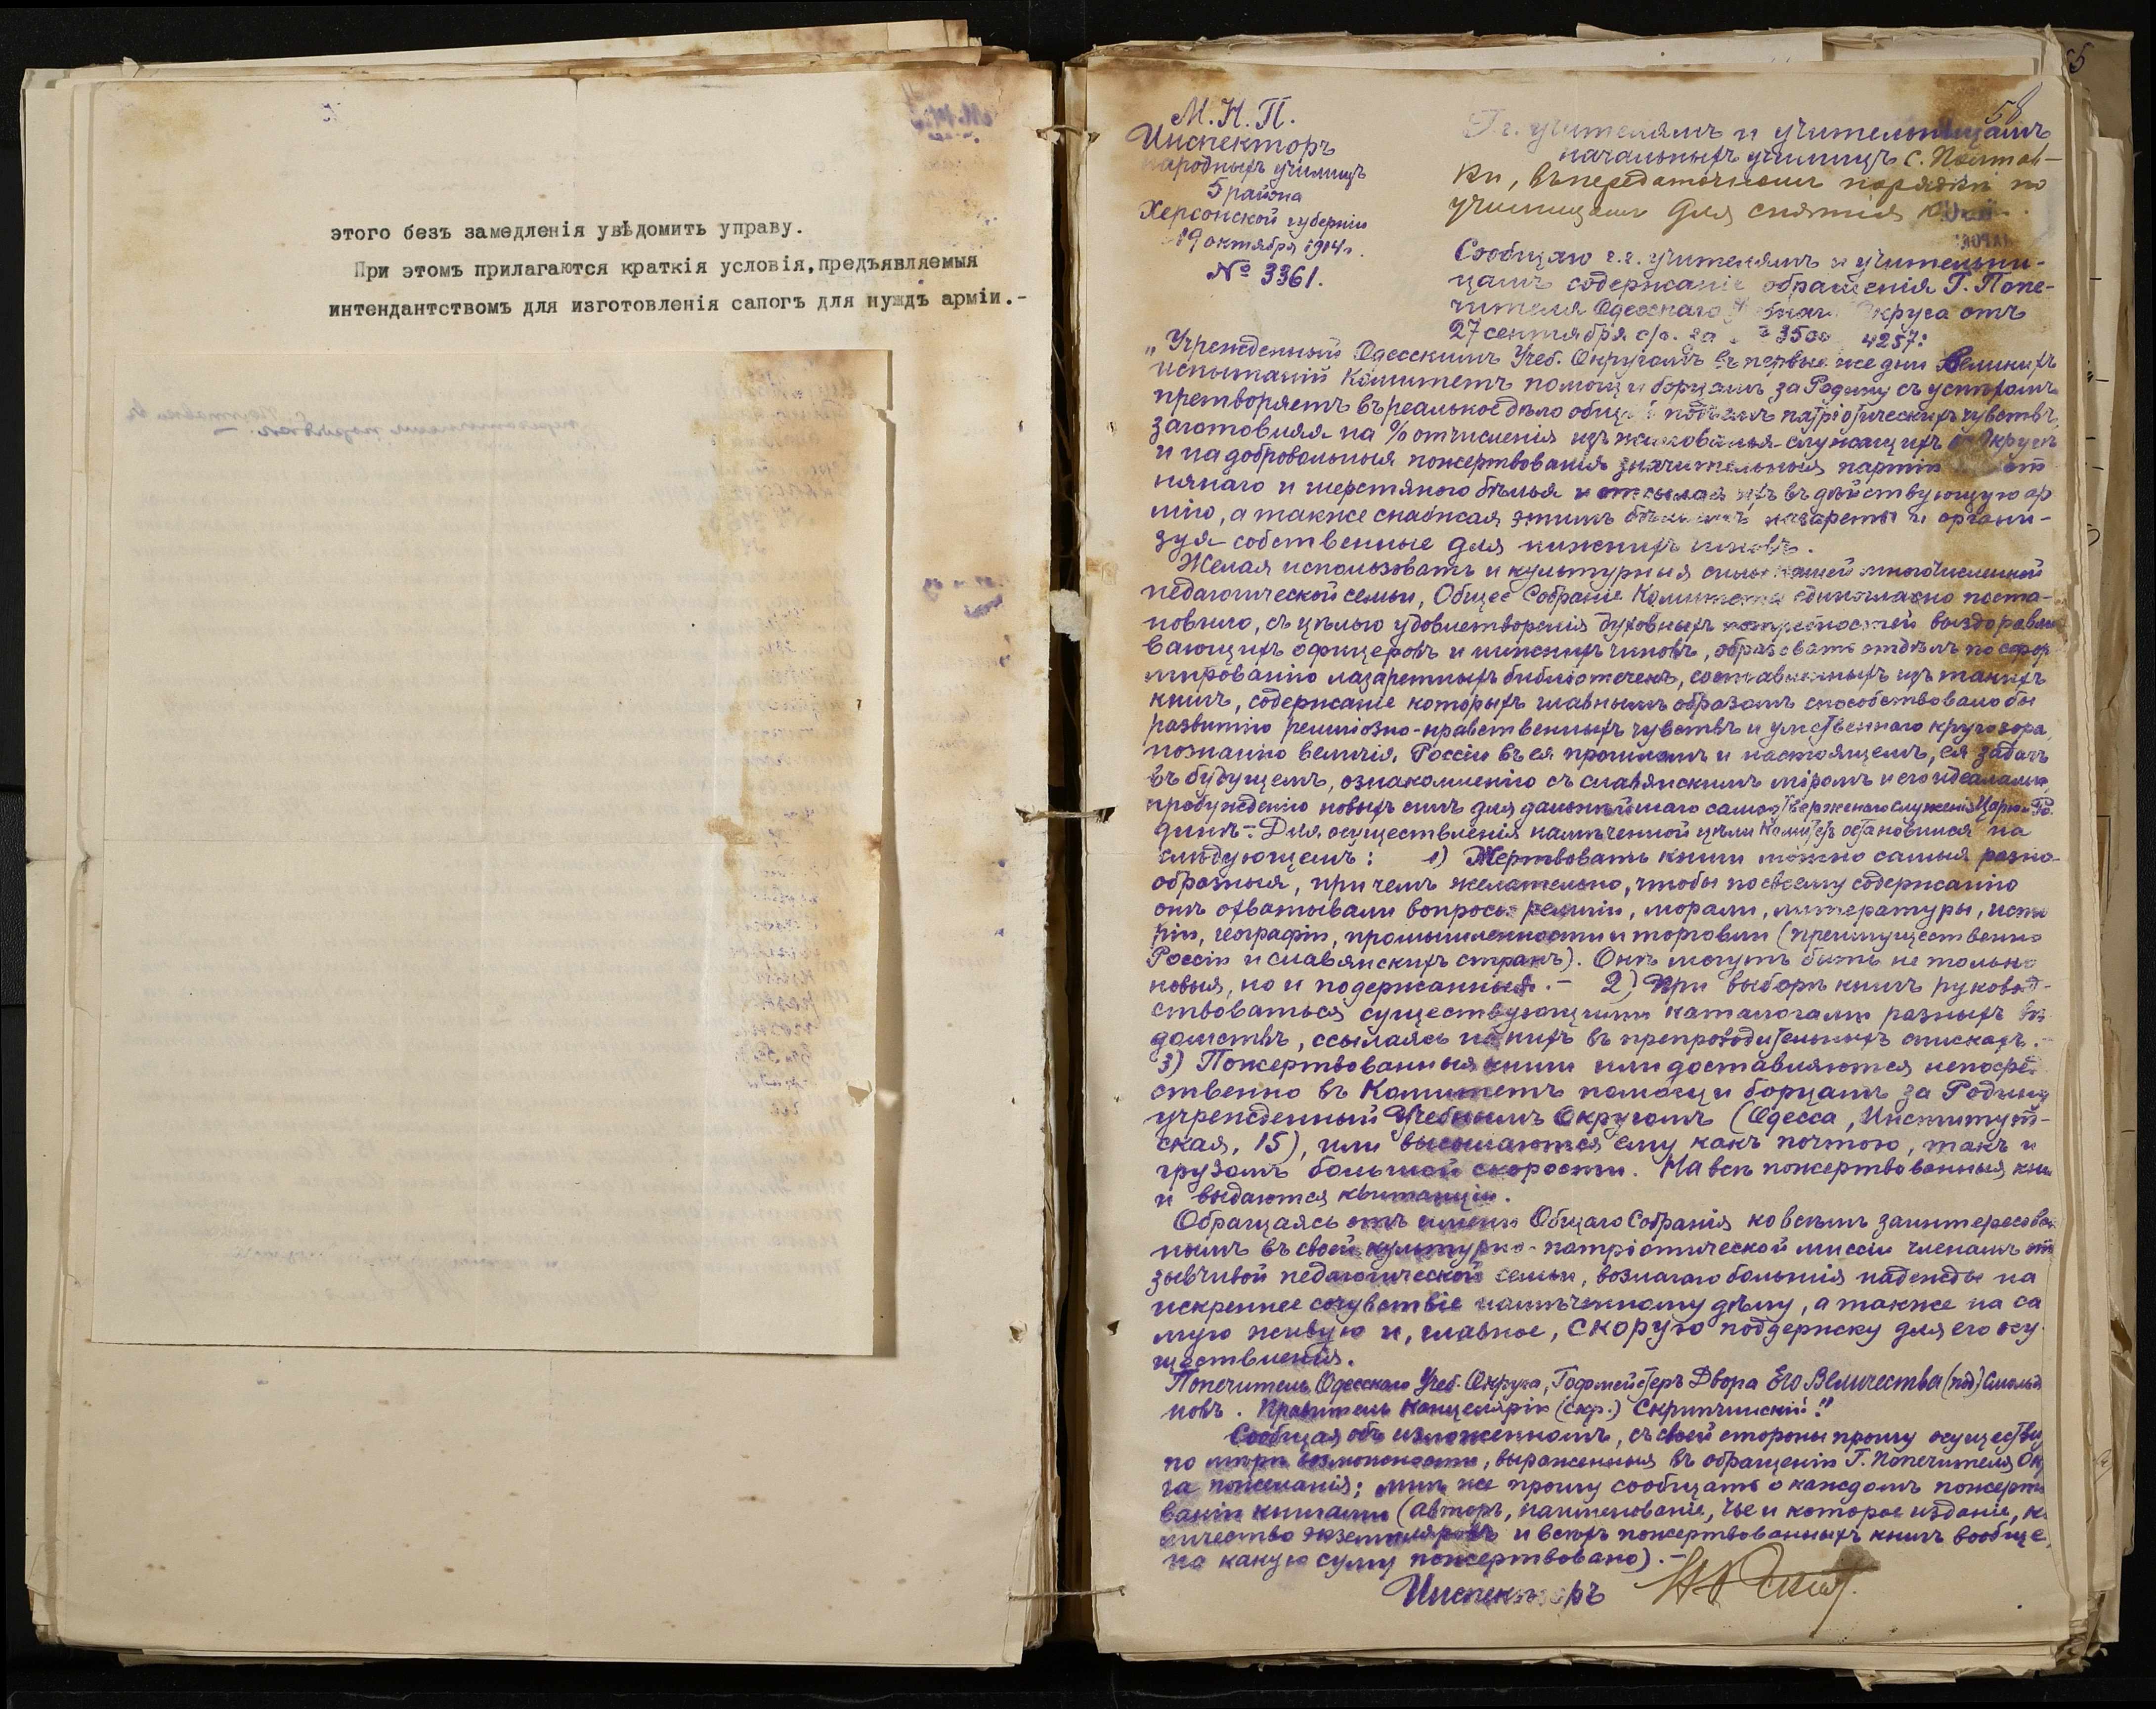 этого безъ замедленія увѣдомить управу.
При этомъ прилагаются краткія условія, предъявляемыя
интендантствомъ для изготовленія сапогъ для нуждъ арміи.-
58
М. Н. П.
Инспекторъ
народныхъ училищъ
5 района
Херсонской губерніи
19 октября 1914 г.
№ 3361.
Г.г. учителямъ и учительницамъ
начальныхъ училищъ с. Полтав-
ки, въ передаточномъ порядкѣ по
училищамъ для снятія
Сообщаю г.г. учителямъ и учительни-
цамъ содержаніе обращенія Г. Попе-
чителя Одесскаго Округа отъ
27 сентября с/г. за 4257:
"Учрежденный Одесскимъ Учеб. Округомъ въ первые же дни Великихъ
испытаній Комитетъ помощи борцамъ за Родину съ успѣхомъ
претворяетъ въ реальное дѣло общій подъемъ патріотическихъ чувствъ,
заготовляя на % отчисленія изъ жалованья служащихъ въ Округѣ
и на добровольныя пожертвованія значительныя партіи
нянаго и шерстяного бѣлья и отсылая ихъ въ дѣйствующую ар
мію, а также снабжая этимъ бѣльемъ лазареты и органи-
зуя собственные для нижнихъ чиновъ.
Желая использовать и культурныя силы нашей многочисленной
педагогической семьи, Общее Собраніе Комитета единогласно поста-
новило, съ цѣлью удовлетворенія духовныхъ потребностей выздоравли
вающихъ офицеровъ и нижнихъ чиновъ, образовать отдѣлъ по сфор
мированію лазаретныхъ библіотечекъ, составленныхъ изъ такихъ
книгъ, содержаніе которыхъ главнымъ образомъ способствовало бы
развитію религіозно-нравственныхъ чувствъ и умственнаго кругозора,
познанію величія Россіи въ ея прошломъ и настоящемъ, ея задачъ
въ будущемъ, ознакомленію съ славянскимъ міромъ и его идеалами,
пробужденію новыхъ силъ для дальнѣйшаго самоотверженаго служенія Царю и Ро-
динѣ.- Для осуществленія намѣченной цѣли Комитетъ остановился на
слѣдующемъ: 1) Жертвовать книги можно самыя разно-
образныя, при чемъ желательно, чтобы по своему содержанію
онѣ охватывали вопросы религіи, морали, литературы, исто
ріи, географіи, промышленности и торговли (преимущественно
Россіи и славянскихъ странъ). Онѣ могутъ быть не только
новыя, но и подержанныя.- 2) При выборѣ книгъ руковод-
ствоваться существующими каталогами разныхъ вѣ-
домствъ, ссылаясь на нихъ въ препроводительныхъ спискахъ.-
3) Пожертвованныя книги или доставляются непосред
ственно въ Комитетъ помощи борцамъ за Родину
учрежденный Учебнымъ Округомъ (Одесса, Институт-
ская, 15), или высылаются ему какъ почтою, такъ и
грузомъ большой скорости. На всѣ пожертвованныя кни
и выдаются квитанціи.
Обращаясь отъ имени Общаго Собранія ко всѣмъ заинтересован
нымъ въ своей культурно-патріотической миссіи членамъ от
зывчивой педагогической семьи, возлагаю большія надежды на
искреннее сочувствіе намѣченному дѣлу, а также на са
мую живую и, главное, скорую поддержку для его осу-
ществленія.
Попечитель Одесскаго Учеб. Округа, Гофмейстеръ Двора Его Величества (под) Смолья
новъ. Правитель Канцеляріи (скр.) Скрипчинскій."
Сообщая объ изложенномъ, съ своей стороны прошу осуществи
по мѣрѣ возможности, выраженныя въ обращеніи Г. Попечителя Ок
га пожеланія; мнѣ же прошу сообщать о каждомъ пожертв
ваніи книгами (авторъ, наименованіе, чье и которое изданіе, ко
личество экземпляровъ и всѣхъ пожертвованныхъ книгъ вообще,
на какую сумму пожертвовано).-
Инспекторъ